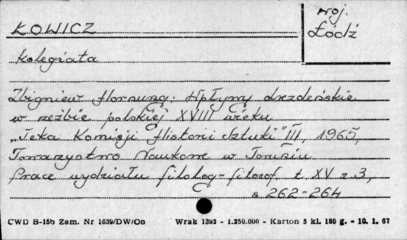 ŁOWICZ
woj.
Łódź
Kolegiata
Zbigniew Hornung: Wpływy drezdeńskie
w rzeźbie polskiej XVIII wieku
"Teka Komisji Historii Sztuki" III, 1965,
Towarzystwo Naukowe w Toruniu
Prace wydziału filolog-filozof. t. XV z. 3,
s 262-264
CWD B-15b Zam. Nr 1639/DW/On Wrak 1392 - 1.250.000 - Karton 5 kl. 180 g. - 10. 1. 67